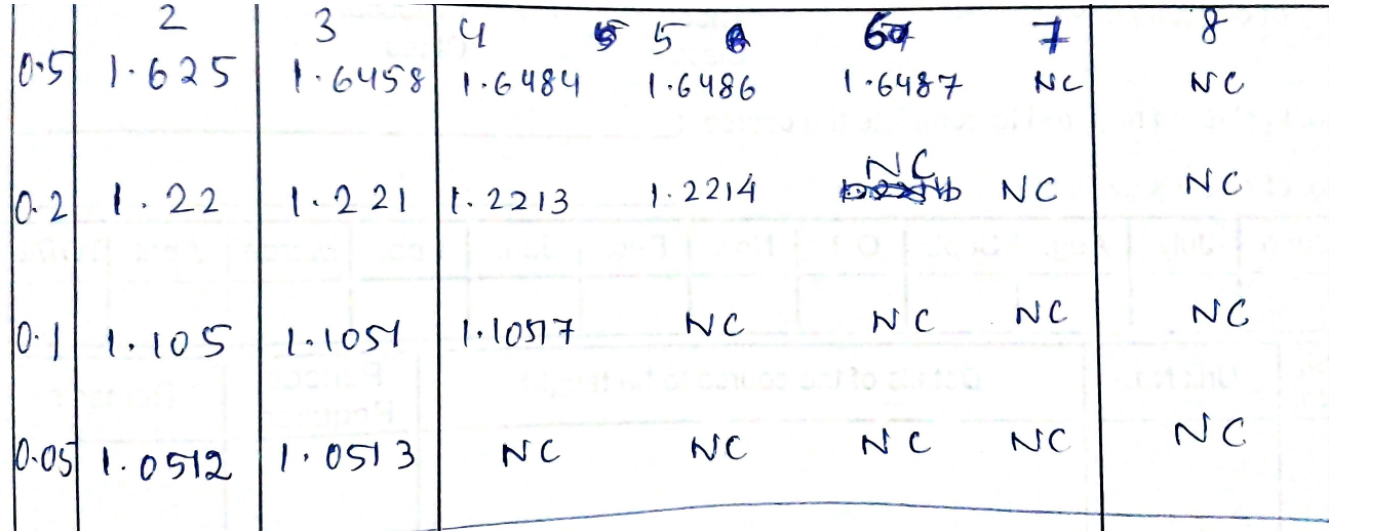 2 3 4 5 6 7 8
0.5 1.625 1.6458 1.6484 1.6486 1.6487 NC NC
0.2 1.22 1.221 1.2213 1.2214 NC NC NC
0.1 1.105 1.1051 1.10517 NC NC NC NC
0.05 1.0512 1.0513 NC NC NC NC NC